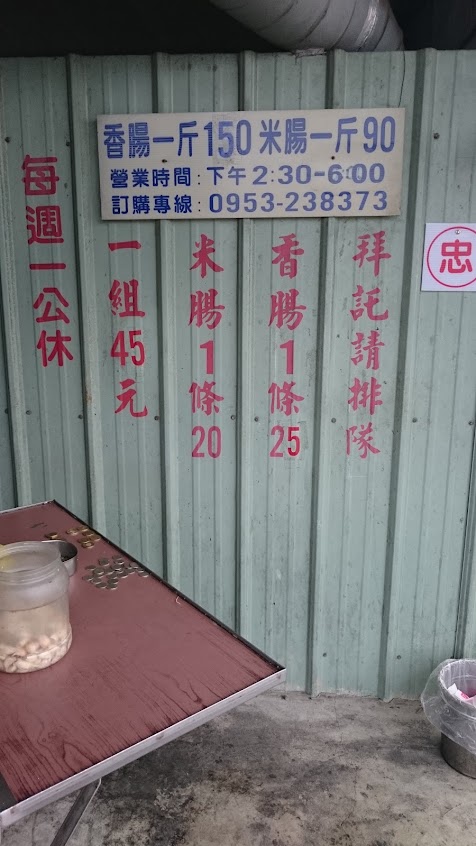 香腸一斤150 米腸一斤90
營業時間：下午2:30-6:00
訂購專線：0953-238373
忠
拜託請排隊
香腸1條25
米腸1條20
一組45元
每週一公休